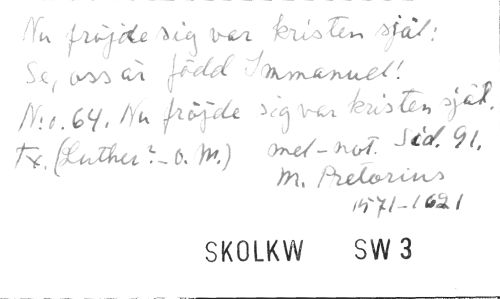 Nu fröjde sig var kristen själ:
Se, oss är född Immanuel!
N:o. 64. Nu fröjde sig var kristen själ.
Tx. (Luther? - o. M.) mel-not. Sid. 91.
M. Pretorius
1571-1621
SKOLKW SW 3